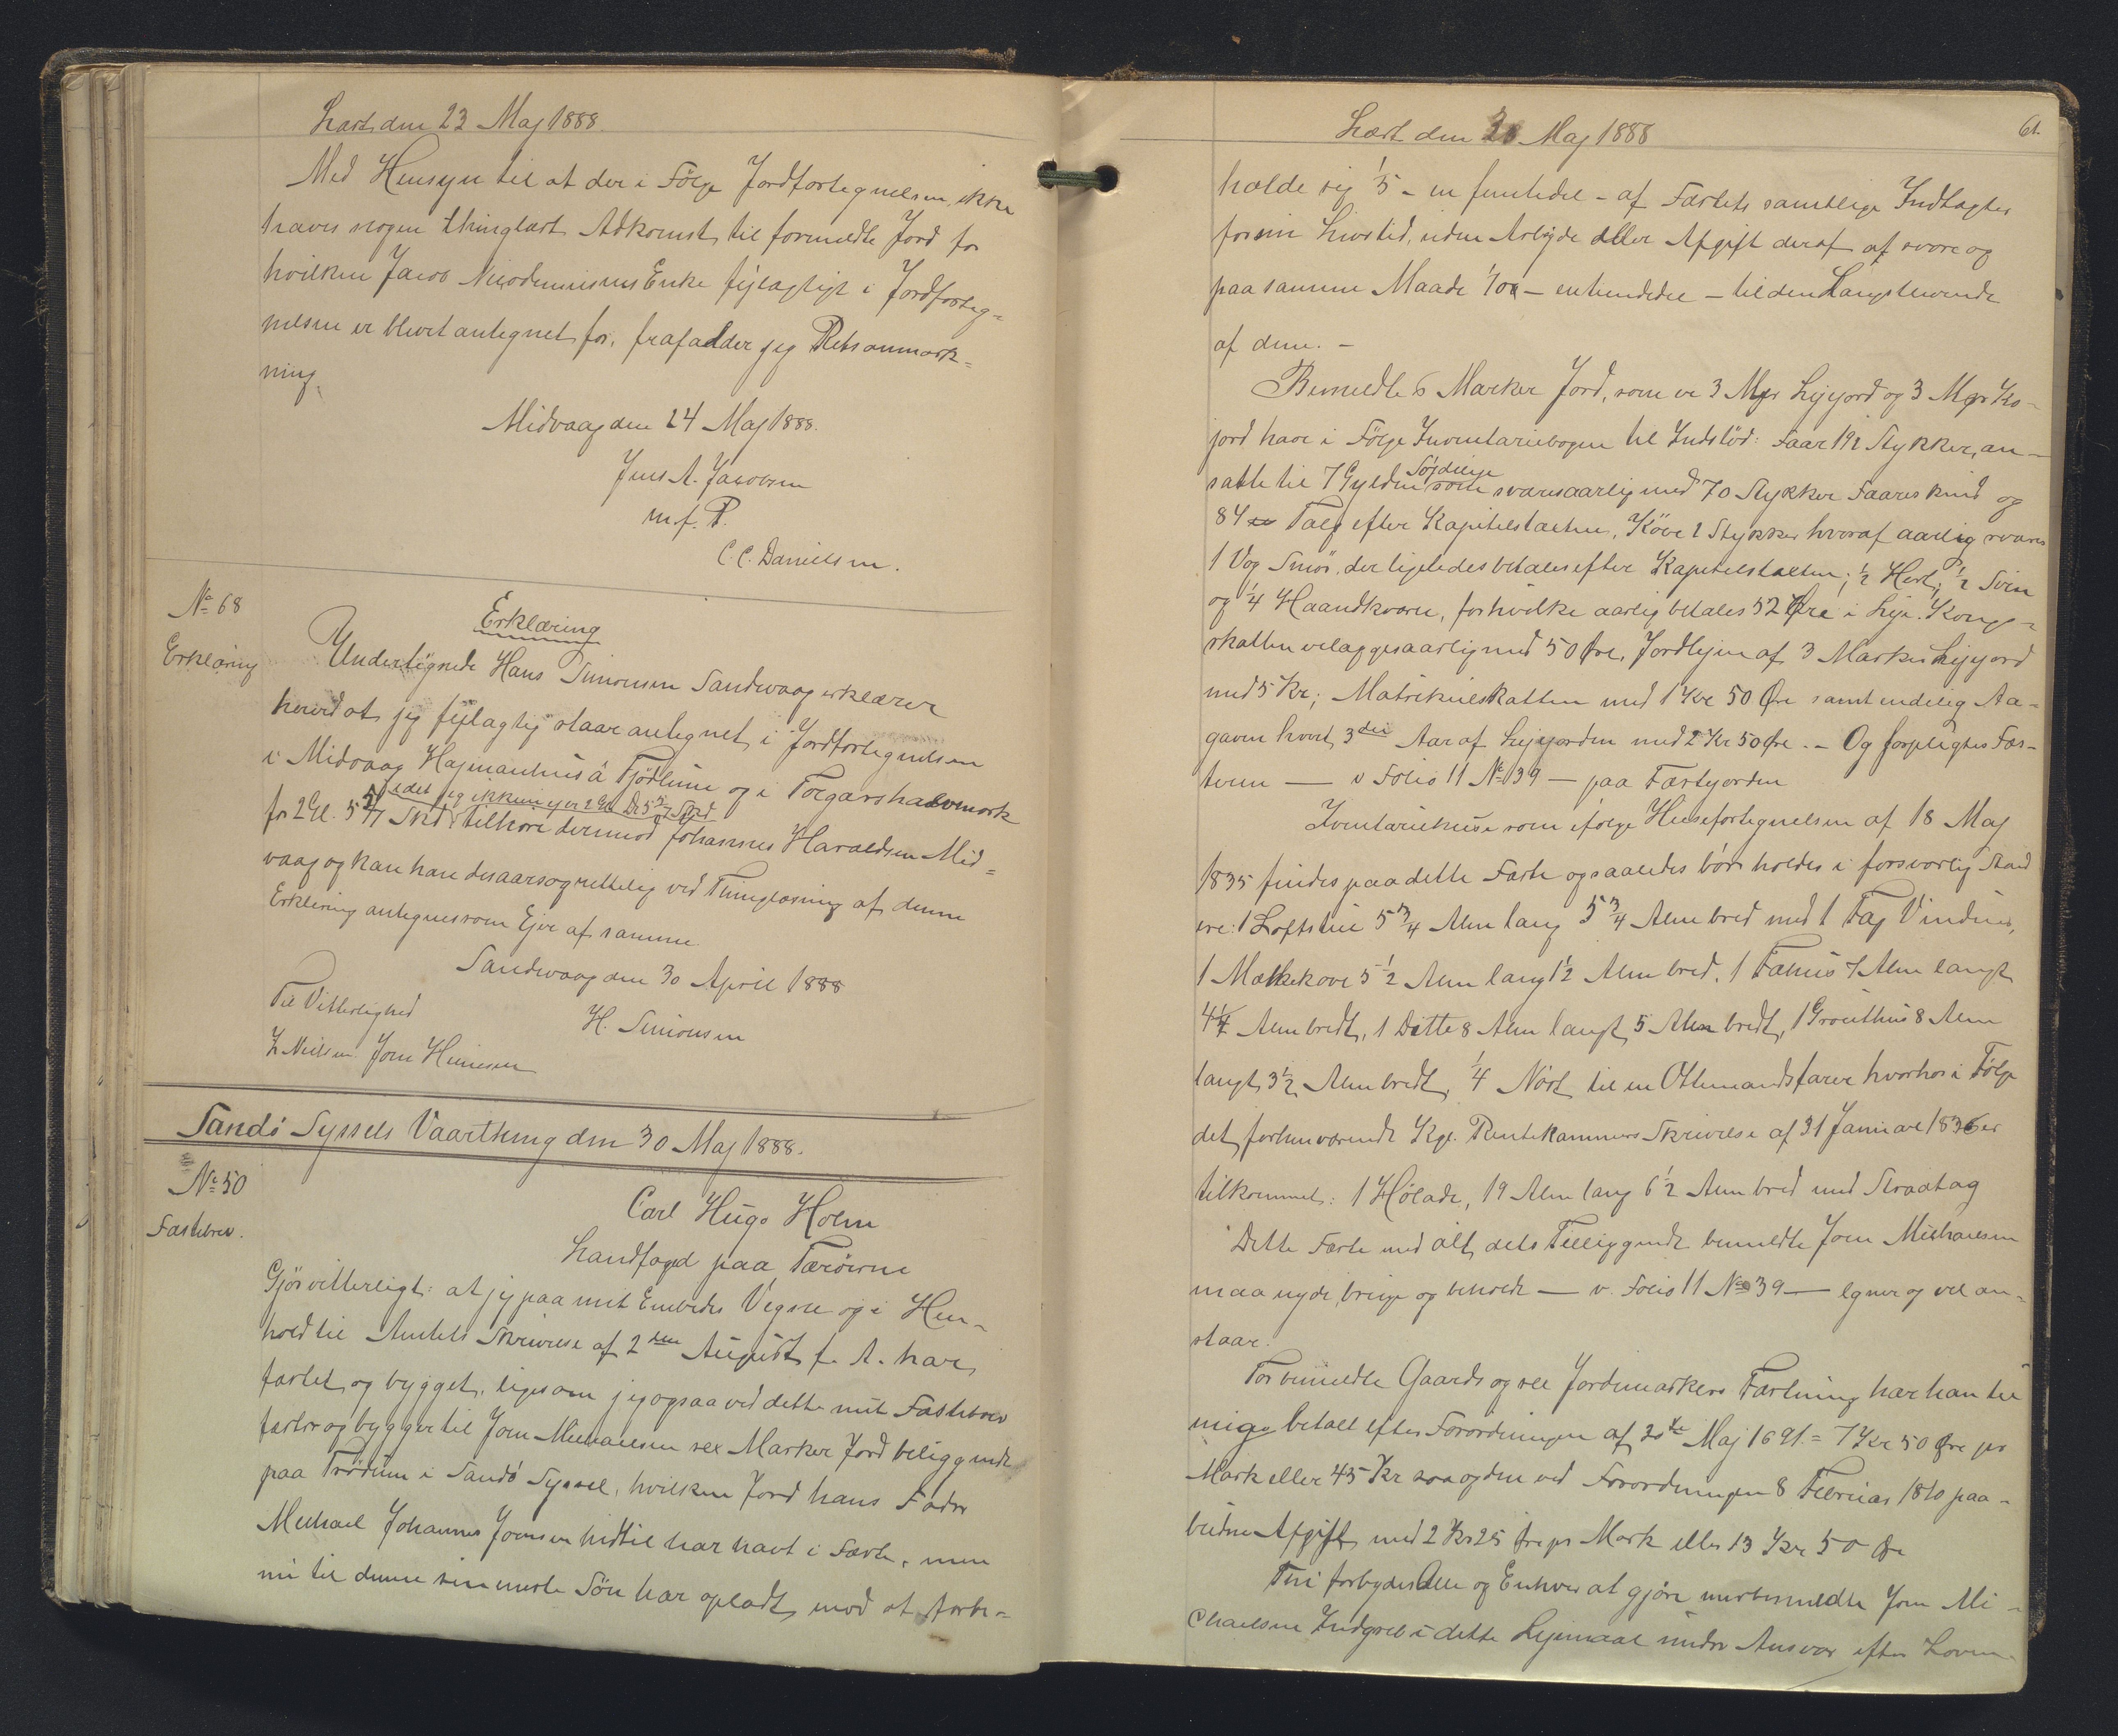 Læst den 23 Maj 1888.
Med Hensyn til at der i Følge Jordfortegnelsen ikke
haves nogen thinglæst Adkomst til formeldte Jord for
hvilken Jacob Nicodemussens Enke fejlagtigt i Jordforteg=
nelsen er blevet antegnet for, frafalder jeg Retsanmærk=
ning.
Midvaag den 24 Maj 1888.
Jens A. Jacobsen
m. f. P.
C. C. Danielsen.
No 68
Erklæring
Erklæring
Undertegnede Hans Simonsen Sandevaag erklærer
herved at jeg fejlagtig staar antegnet i Jordfortegnelsen
i Midvaag Hajmanhus á Fjödlune og i Torgarshalvmark
idet jeg ikkun ejer 2 Gl. 5 5/7 Skd
for 2 Gl. 5 5/7 Skd tilhøre derimod Johannes Haraldsen Mid=
vaag og kan han desaarsag rettelig ved Thinglæsning af denne
Erklæring antegnes som Ejer af samme
Sandevaag den 30 April 1888
Til Vitterlighed
H. Simonsen
Z. Nielsen. Joen Heinesen
Sandø Syssels Vaarthing den 30 Maj 1888.
No 50
Fæstebrev.
Carl Hugo Holm
Landfoged paa Færøerne
Gjør vitterligt: at jeg paa mit Embedes Vegne og i Hen-
hold til Amtets Skrivelse af 2den August f. A. har
fæstet og bygget, ligesom jeg ogsaa ved dette mit Fæstebrev
fæster og bygger til Joen Michaelsen sex Marker Jord beliggende
paa Trødum i Sandø Syssel, hvilken Jord hans Fader
Michael Johannes Joensen hidtil har havt i Fæste, men
nu til denne sin ældste Søn har opladt, mod at forbe=
Læst den 30 Maj 1888
61.
holde sig 1/5 - en femtedel - af Fæstets samtlige Indtægter
for sin Livstid, uden Arbejde eller Afgift deraf at svare og
paa samme Maade 1/100 - en hundrede - til den Længstlevende
af dem. -
Bemeldte 6 Marker Jord, som er 3 Mgr Lejejord og 3 Mgr Ko-
jord have i Følge Inventariebogen til Indstød: Faar 192 Stykker, an-
Søjdelige
satte til 7 Gylden som svares aarlig med 70 Stykker Faareskind og
84 Talg efter Kapitelstaxten, Køer 2 Stykker hvoraf aarlig svares
1 Vog Smør, der ligeledes betales efter Kapitelstaxten; 1/2 Hest; 1/2 Svin
og 1/4 Haandkværn, for hvilke aarlig betales 52 Øre i Leje. Konge=
skatten erlægges aarlig med 50 Øre, Jordlejen af 3 Marker Lejejord
med 5 Kr; Matrikulskatten med 1 Kr 50 Øre samt endelig Aa-
gaven hvert 3die Aar af Lejejorden med 2 Kr 50 Øre. - Og forpligtes Fæs-
teren - v Folio 11 No 39 - paa Fæstejorden
Inventariehuse som ifølge Husefortegnelsen af 18 Maj
1835 findes paa dette Fæste og saaledes bør holdes i forsvarlig Stand
ere: 1 Loftstue 5 3/4 Alen lang 5 3/4 Alen bred med 1 Fag Vinduer,
1 Mælkekove 5 1/2 Alen lang 1 1/2 Alen bred. 1 Fæhus 7 Alen langt
4 1/4 Alen bredt, 1 Ditto 8 Alen langt 5 Alen bredt, 1 Grouthus 8 Alen
langt 3 1/2 Alen bredt. 1/4 Nøst til en Ottemandsfarer hvorhos i Følge
det forhenværende Kgl. Rentekammers Skrivelse af 31 Januar 1836 er
tilkommet: 1 Hølade, 19 Alen lang 6 1/2 Alen bred med Straatag
Dette Fæste med alt dets Tilliggende bemeldte Joen Michaelsen
maa nyde, bruge og beholde - v. Folio 11 No 39 - egner og vel an=
staar.
For bemeldte Gaards og sex Jordemarkers Fæstning har han til
mig betalt efter Forordningen af 30te Maj 1691 = 7 Kr 50 Øre pr
Mark eller 45 Kr saa og den ved Forordningen 8 Februar 1810 paa-
budne Afgift med 2 Kr 25 Øre pr Mark eller 13 Kr 50 Øre
Thi forbydes Alle og Enhver at gjøre merbemeldte Joen Mi-
chaelsen Indgreb i dette Lejemaal under Ansvar efter Loven.